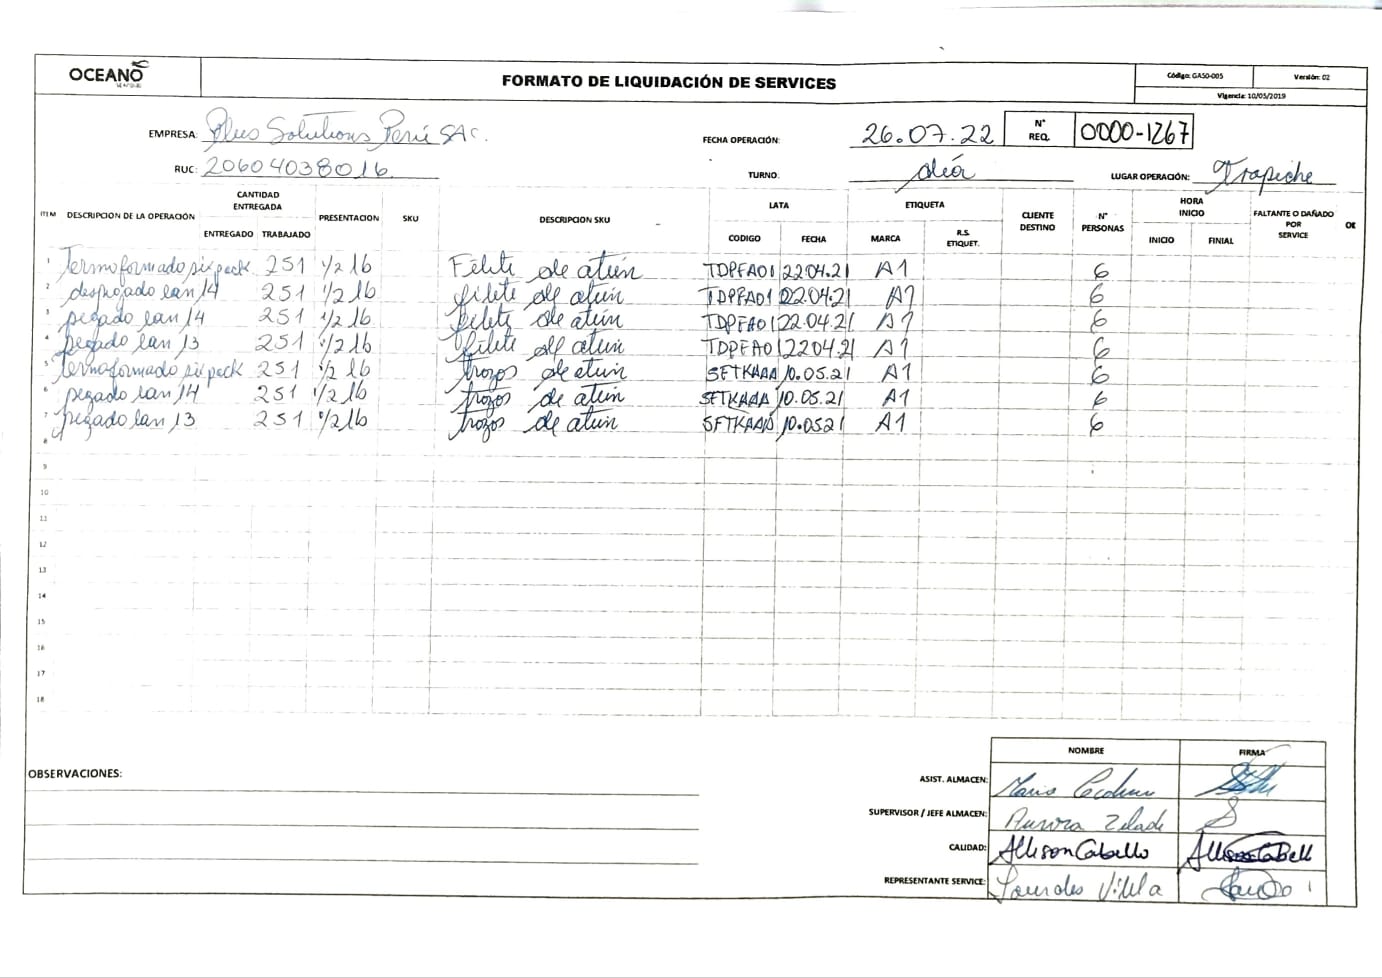 OCEANO
FORMATO DE LIQUIDACIÓN DE SERVICES
Código: GASO-005
Versión: 02
Vigencia: 10/05/2019
EMPRESA: Plus Solutions Perú SAC.
FECHA OPERACIÓN: 26.07.22
N° REQ. 0000-1267
RUC: 20604038016
TURNO: día
LUGAR OPERACIÓN: Trapiche
ITEM DESCRIPCION DE LA OPERACIÓN CANTIDAD ENTREGADA PRESENTACION SKU DESCRIPCION SKU LATA ETIQUETA CLIENTE DESTINO N° PERSONAS HORA INICIO FALTANTE O DAÑADO POR SERVICE
ENTREGADO TRABAJADO CODIGO FECHA MARCA R.S. ETIQUET. INICIO FINIAL
1 Termoformado sixpack 251 1/2 lb Filete de atún TDPFA01 22.04.21 A1 6
2 despojado lan 14 251 1/2 lb filete de atún TDPFA01 22.04.21 A1 6
3 pegado lan 14 251 1/2 lb filete de atún TDPFA01 22.04.21 A1 6
4 pegado lan 13 251 1/2 lb filete de atún TDPFA01 22.04.21 A1 6
5 termoformado sixpack 251 1/2 lb trozos de atun 10.05.21 A1 6
6 pegado lan 14 251 1/2 lb trozos de atun 10.05.21 A1 6
7 pegado lan 13 251 1/2 lb trozos de atun 10.0521 A1 6
8
9
10
11
12
13
14
15
16
17
18
OBSERVACIONES:
NOMBRE FIRMA
ASIST. ALMACEN: Mario
SUPERVISOR / JEFE ALMACEN: Aurora
CALIDAD: Allison Cabello
REPRESENTANTE SERVICE: Lourdes Vilela